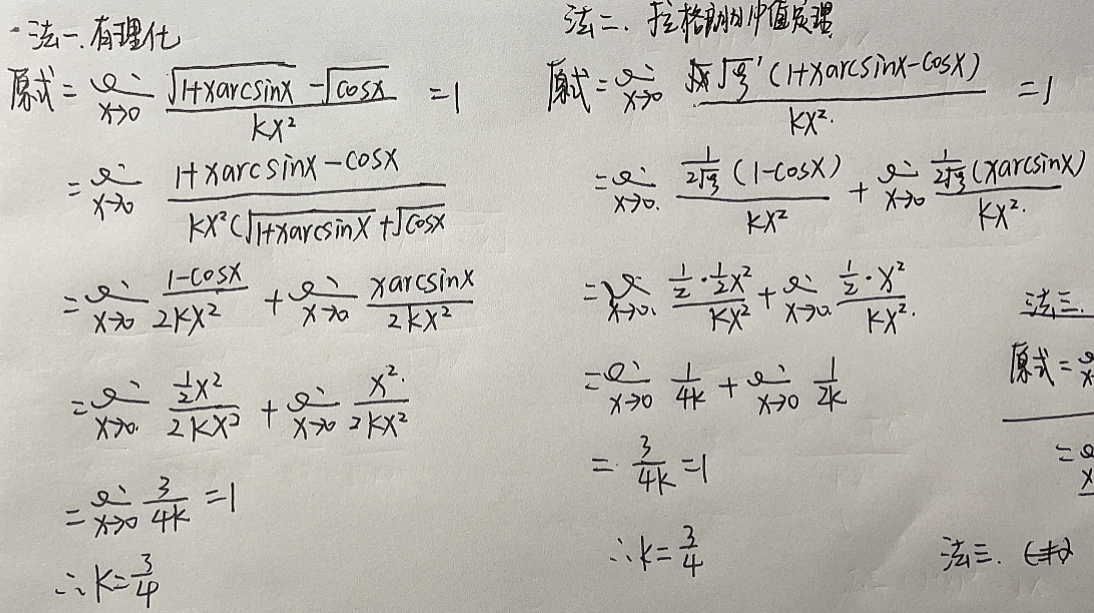 法一.有理化
原式 = lim x→0 (√(1+xarcsinx) - √cosx) / kx² = 1
= lim x→0 (1+xarcsinx-cosx) / kx²(√(1+xarcsinx)+√cosx
= lim x→0 (1-cosx) / 2kx² + lim x→0 xarcsinx / 2kx²
= lim x→0 ½x² / 2kx² + lim x→0 x² / 2kx²
= lim x→0 3/4k = 1
∴ k = 3/4
法二. 拉格朗日中值定理
原式 = lim x→0 √ξ' (1+xarcsinx-cosx) / kx² = 1
= lim x→0 1/(2√ξ) (1-cosx) / kx² + lim x→0 1/(2√ξ) (xarcsinx) / kx²
= lim x→0 ½·½x² / kx² + lim x→0 ½·x² / kx²
= lim x→0 1/4k + lim x→0 1/2k
= 3/4k = 1
∴ k = 3/4
法三.
原式 =
=
法三.